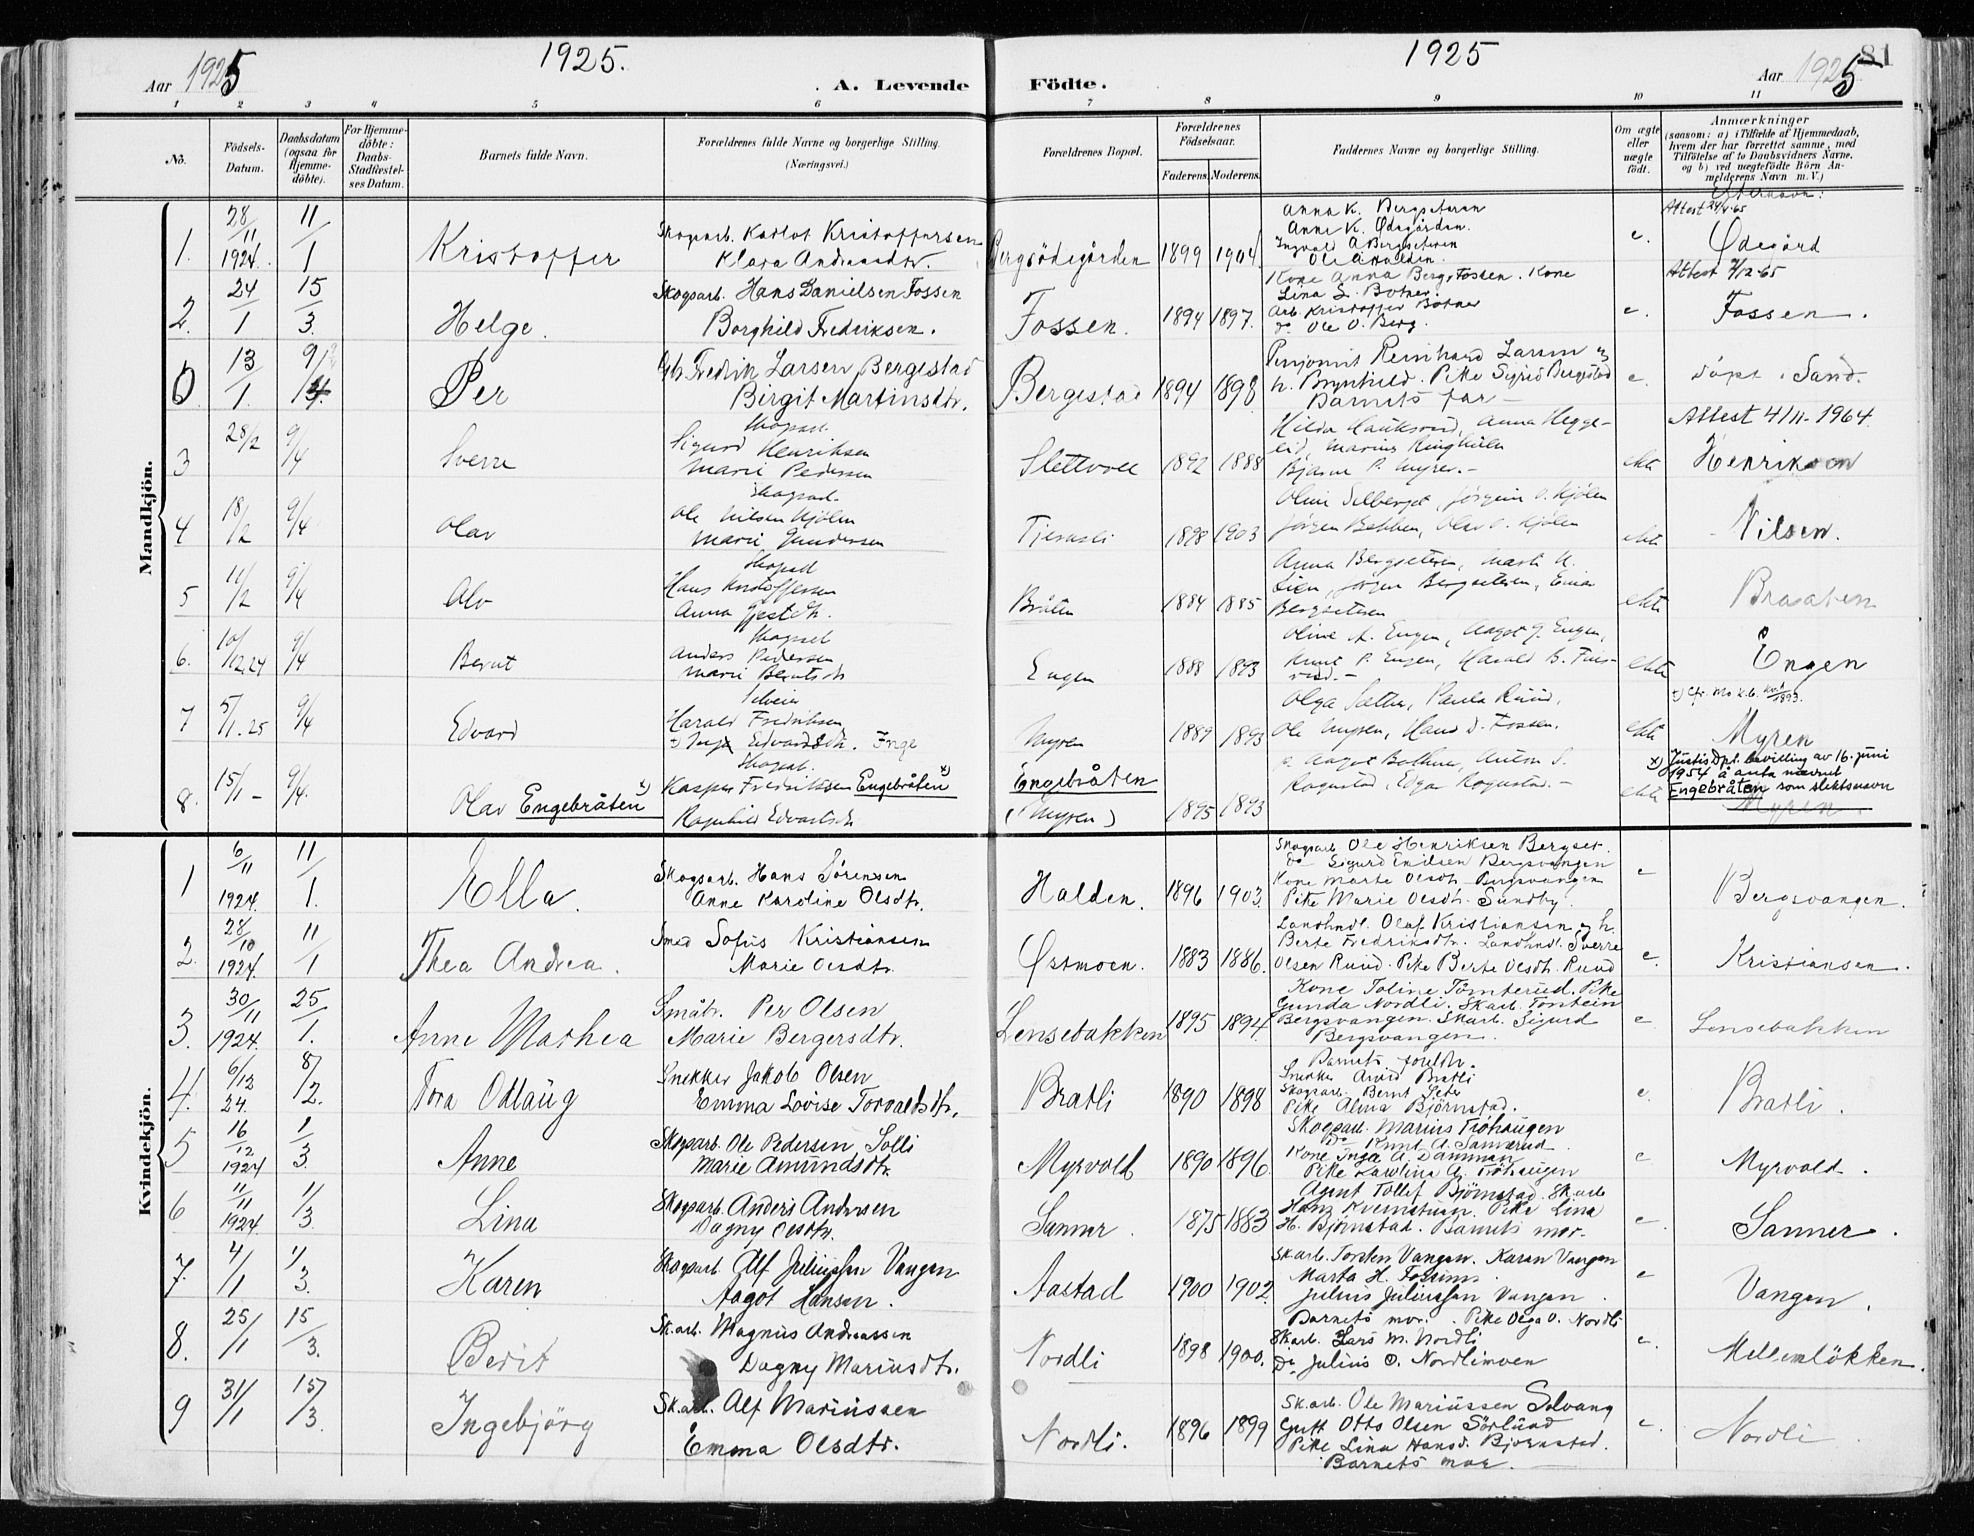 Aar 1925
1925.
A. Levende
Födte.
1925
Aar 1925
81
1 2 3 4 5 6 7 8 9 10 11
No.
Födsels-Datum.
Daabsdatum (ogsaa for Hjemme-döbte).
For Hjemme-döbte: Daabs-Stadfæstel-ses Datum.
Barnets fulde Navn.
Forældrenes fulde Navne og borgerlige Stilling. (Næringsvei.)
Forældrenes Bopæl.
Forældrenes Födselsaar.
Faderens. Moderens.
Faddernes Navne og borgerlige Stilling.
Om ægte eller uægte födt.
Anmærkninger
(saasom: a) i Tilfælde af Hjemmedaab, hvem der har forrettet samme, med Tilföielse af to Daabsvidners Navne, og b) ved uægtefödte Börn Anmelderens Navn m. V.)
Efternavn:
Mandkjön.
1. 28/11 1924. 11/1 Kristoffer
Skogsarb. Karlot Kristoffersen
Klara Andreasdtr.
Bergsödegården 1899 1904
Anna K. Bergseteren
Anne K. Ødegården.
Ingvald A Bergseteren
Ole A Halden.
e. Ødegård
2. 24/1 15/3. Helge.
Skogsarb. Hans Danielsen Fossen
Borghild Fredriksen.
Fossen. 1894 1897.
Kone Anna Berg, Fossen. Kone
Lina S. Botner.
Arb. Kristoffer Botner
do Ole O. Berg.
e. Attest 2/12-65
Fossen.
0. 13/1. Per
Fredrik Larsen Bergestad
Birgit Martinsdtr.
Bergestad 1894 1898
Reinhard Larsen
Pike Sigrid Bergstad
Barnets far —
e. döpt i Sand.
3 28/2 9/4 Sverre
Skogsarb.
Sigurd Henriksen
Marie Pedersen
Slettvoll 1892 1888
Bjarne P. Myren.
ekte Attest 4/11-1964
Henriksen
4 18/2 9/4 Olav
Skogsarb.
Ole Nilsen Kjölen
Marie Gundersen
1898 1903
Jörgen Bakken, Olav O. Kjölen
ekte Nilsen.
5 11/2 9/4 Alv
Hans Kristoffersen
Anna
Bråten 1884 1885
Anna Bergseteren, Marte K.
Lien, Jörgen Bergseteren, Einar
Bergseteren
ekte Braaten
6. 10/12 24 9/4 Bernt
Anders Pedersen
Marie Berntsdtr
Engen 1888 1893
Oline A. Engen, Aagot J. Engen,
Knut P. Engen, Harald B.
ekte Engen
7 5/1.25 9/4 Edvard
Harald Fredriksen
Edvardsdtr. Inge
Myren 1889 1893
Olga Sæther, Paula Ruud,
Ole Myren, Hans D. Fossen.
ekte Myren
8. 15/1 — 9/4. Olav Engebråten x)
Skogsarb.
Kasper Fredriksen Engebråten x)
Ragnhild Edvartsdtr
Engebråten
(Myren) 1895 1893
Rogustad, Edgar Rogustad. —
ekte
x) Justis Dpt. bevilling av 16. juni
1954 å anta navnet
Engebråten som slektsnavn
Myren
Kvindekjön.
1 6/11 1924. 11/1. Ella.
Skogsarb. Hans Sörensen
Anne Karoline Olsdtr.
Halden. 1896 1903.
Skogsarb. Ole Henriksen Bergset.
do Sigurd Emilsen Bergsvangen
Kone Marte Olsdtr. Bergsvangen
Pike Marie Olsdtr. Sundby.
e Bergsvangen.
2. 28/10 1924. 11/1 Thea Andrea.
Smed Sofus Kristiansen
Marie Olsdtr.
Østmoen. 1883 1886.
Landhndl. Olaf Kristiansen og h.
Berte Fredriksdtr. Landhndl. Sverre
Olsen Ruud. Pike Berte Olsdtr. Ruud
e. Kristiansen.
3. 30/11 1924. 25/1. Anne Mathea
Småbr. Per Olsen
Marie Bergersdtr.
Lensebakken 1895 1894.
Kone Toline Tömterud. Pike
Gunda Nordli. Skarb. Torstein
Bergsvangen. Skarb. Sigurd
Bergsvangen.
e Lensebakken
4. 6/12 24. 8/2. Tora Odlaug
Snekker Jakob Olsen
Emma Lovise Torvaldsdtr.
Bratli 1890 1898
Barnets foreldr.
Snekker Arvid Bratli
Skogsarb. Bernt
Pike Alma Björnstad.
e. Bratli.
5 16/12 1924 1/3. Anne
Skogsarb. Ole Pedersen Solli
Marie Amundsdtr.
Myrvold 1890 1896.
Skogsarb. Marius Trohaugen
Do Knut A. Sannerud.
Kone Inga A. Damman
Pike Karolina A. Trohaugen
e Myrvold.
6 11/11 1924. 1/3. Lina
Skogsarb. Anders Andersen
Dagny Olsdtr.
Sanner. 1875 1883
Agent Tollef Björnstad. Skarb
Hans Kvernstuen. Pike Lina
H. Björnstad. Barnets mor.
e. Sanner.
7. 4/1 1/3. Karen
Skogsarb. Alf Juliussen Vangen
Aagot Hansen.
Aastad 1900 1902.
Skarb. Torsten Vangen. Karen Vangen
Marta H.
Julius Juliussen Vangen.
e Vangen.
8. 25/1 15/3. Berit
Sk.arb. Magnus Andreassen
Dagny Mariusdtr.
Nordli 1898 1900.
Barnets mor. Pike Olga O. Nordli
Skarb. Lars M. Nordli
Do Julius O. Nordlimoen
e. Mellemlökken.
9 31/1 15/3. Ingebjörg
Sk.arb. Alf Mariussen
Emma Olsdtr.
Nordli. 1896 1899
Sk.arb. Ole Mariussen Solvang
Gutt Otto Olsen Sörlund
Pike Lina Hansd. Bjørnstad.
Barnets mor.
e. Nordli